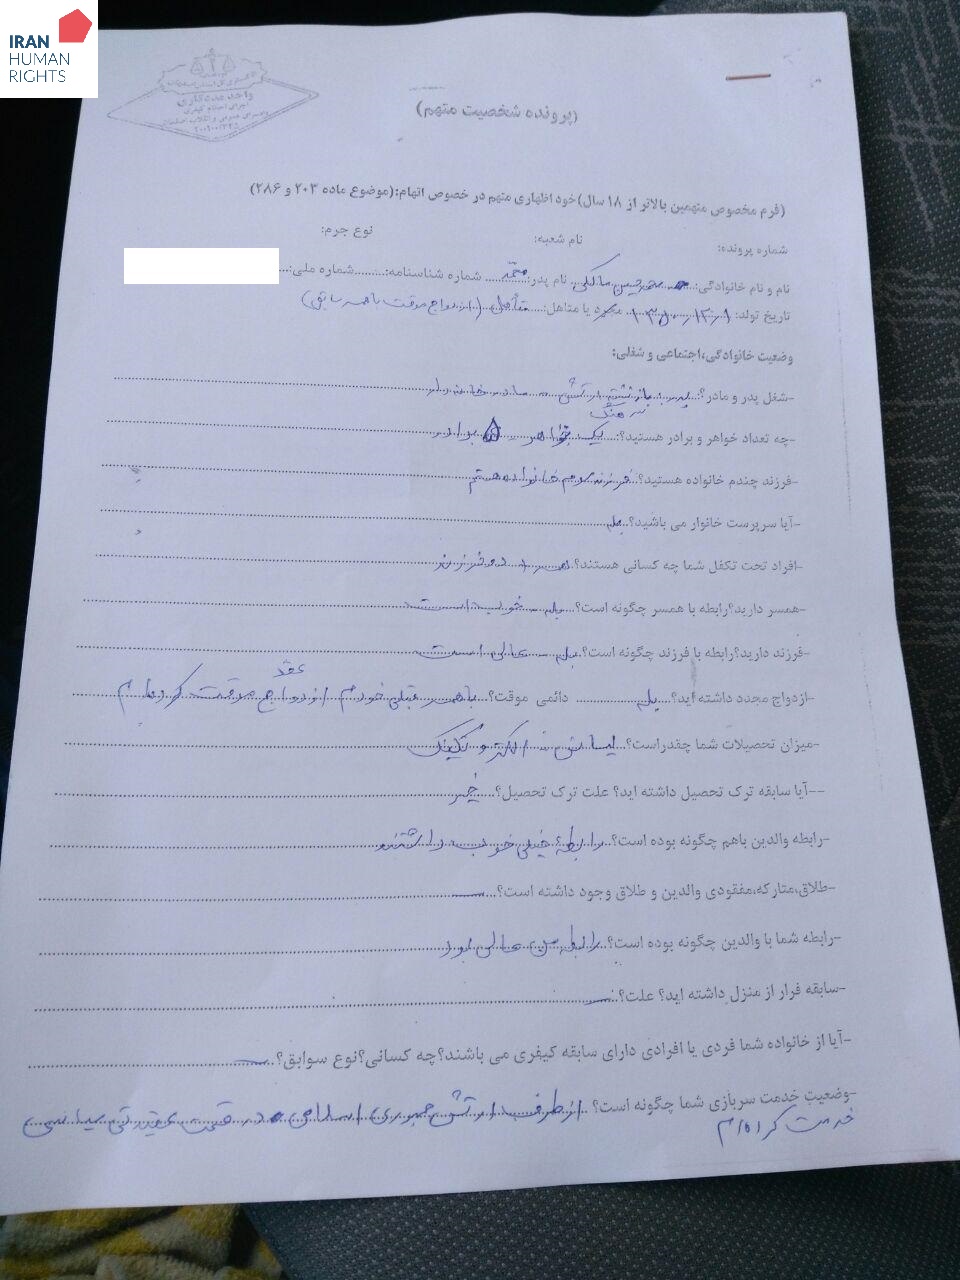 IRAN
HUMAN
RIGHTS
واحد مددکاری
اجرای احکام کیفری
(پرونده شخصیت متهم)
(فرم مخصوص متهمین بالاتر از ۱۸ سال)خود اظهاری متهم در خصوص اتهام:(موضوع ماده ۲۰۳ و ۲۸۶)
شماره پرونده: نام شعبه: نوع جرم:
نام و نام خانوادگی: محمدحسین مالکی نام پدر: محمد شماره شناسنامه: شماره ملی:
تاریخ تولد: مجرد یا متاهل: متأهل (ازدواج موقت با همسر سابق)
وضعیت خانوادگی،اجتماعی و شغلی:
-شغل پدر و مادر؟: پدر بازنشسته ارتش مادر خانه دار
سرهنگ
-چه تعداد خواهر و برادر هستید؟: یک خواهر ۵ برادر
-فرزند چندم خانواده هستید؟ فرزند خانواده هستم
-آیا سرپرست خانوار می باشید؟ بله
-افراد تحت تکفل شما چه کسانی هستند؟ همسر دو فرزند
-همسر دارید؟رابطه با همسر چگونه است؟ بله خوب است
-فرزند دارید؟رابطه با فرزند چگونه است؟ بله عالی است
-ازدواج مجدد داشته اید؟ بله دائمی موقت؟ با همسر قبلی خودم عقد ازدواج موقت کرده ام
-میزان تحصیلات شما چقدراست؟ لیسانس الکترونیک
--آیا سابقه ترک تحصیل داشته اید؟ علت ترک تحصیل؟ خیر
-رابطه والدین باهم چگونه بوده است؟ رابطه خیلی خوب داشتند
-طلاق،متارکه،مفقودی والدین و طلاق وجود داشته است؟
-رابطه شما با والدین چگونه بوده است؟ رابطه من عالی بود
-سابقه فرار از منزل داشته اید؟ علت؟
-آیا از خانواده شما فردی یا افرادی دارای سابقه کیفری می باشند؟چه کسانی؟نوع سوابق؟
-وضعیت خدمت سربازی شما چگونه است؟ از طرف ارتش جمهوری اسلامی در قسمت عقیدتی سیاسی
خدمت کرده ام